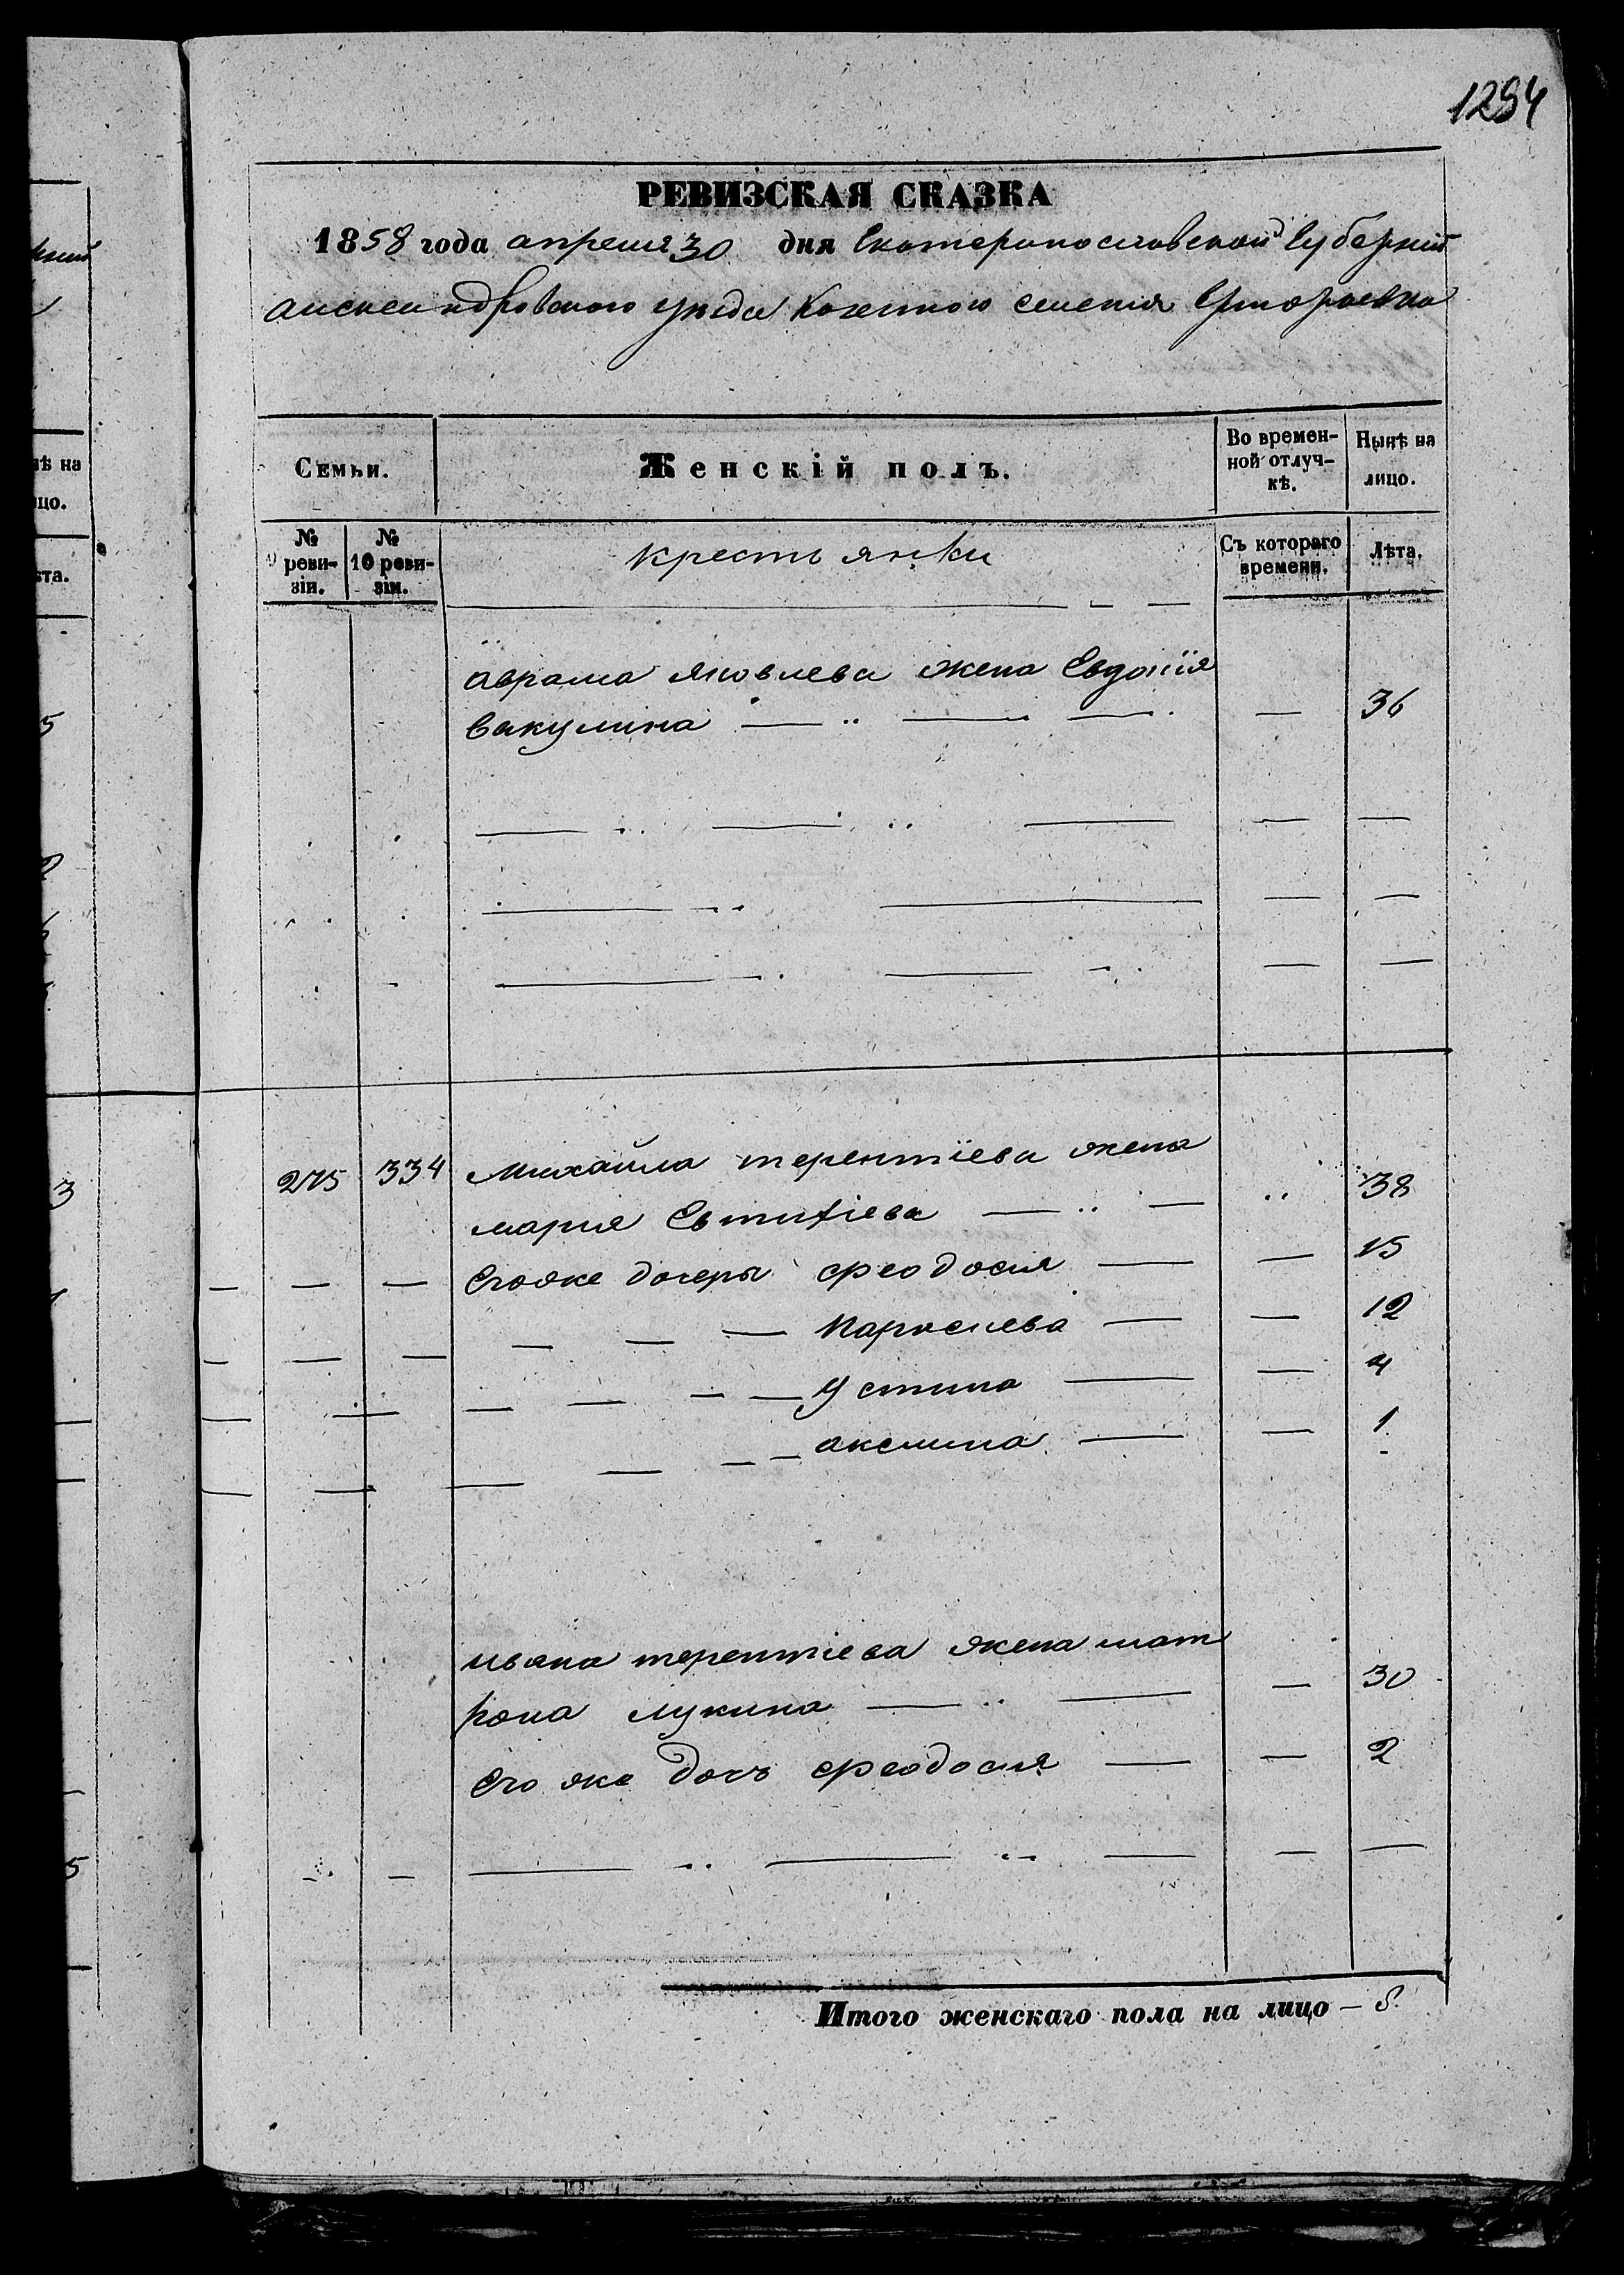 1294
РЕВИЗСКАЯ СКАЗКА
1858 года апреля 30 дня Екатеринославской Губерніи
Александровского уезда Казенного селенія
Семьи.
Женскій полъ.
Во времен-
ной отлуч-
кѣ.
Нынѣ на
лицо.
№
реви-
зіи.
№
10 реви-
зіи.
крестьянки
Съ котораго
времени.
Лѣта.
аврама яковлева жена Евдокія
вакулина — — — — 36
275 334 михайла терентіева жена
мария Евтифіева — — 38
Егоже дочеры феодосия — — 15
— — — параскева — — 12
— — — устина — — 4
— — — акслина — — 1
ивана терентіева жена мат
рона лукина — — — 30
Его же дочь феодосия — — 2
Итого женскаго пола на лицо — 8.
нѣ на
ицо.
ѣта.
5
3
5